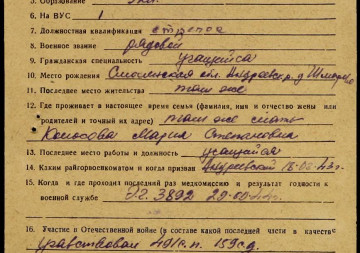 5. Образование
6. На ВУС 1
7. Должностная квалификация стрелок
8. Военное звание рядовой
9. Гражданская специальность учащийся
10. Место рождения Смоленская обл. Андреевск. р. д.
11. Последнее место жительства там же
12. Где проживает в настоящее время семья (фамилия, имя и отчество жены или
родителей и точный их адрес) там же мать
Мария Степановна
13. Последнее место работы и должность учащийся
14. Каким райгорвоенкоматом и когда призван Андреевский
15. Когда и где проходил последний раз медкомиссию и результат годности к
военной службе эг. 3892
16. Участие в Отечественной войне (в составе какой последней части в качестве
участвовал 491 с.п. 159 с.д.